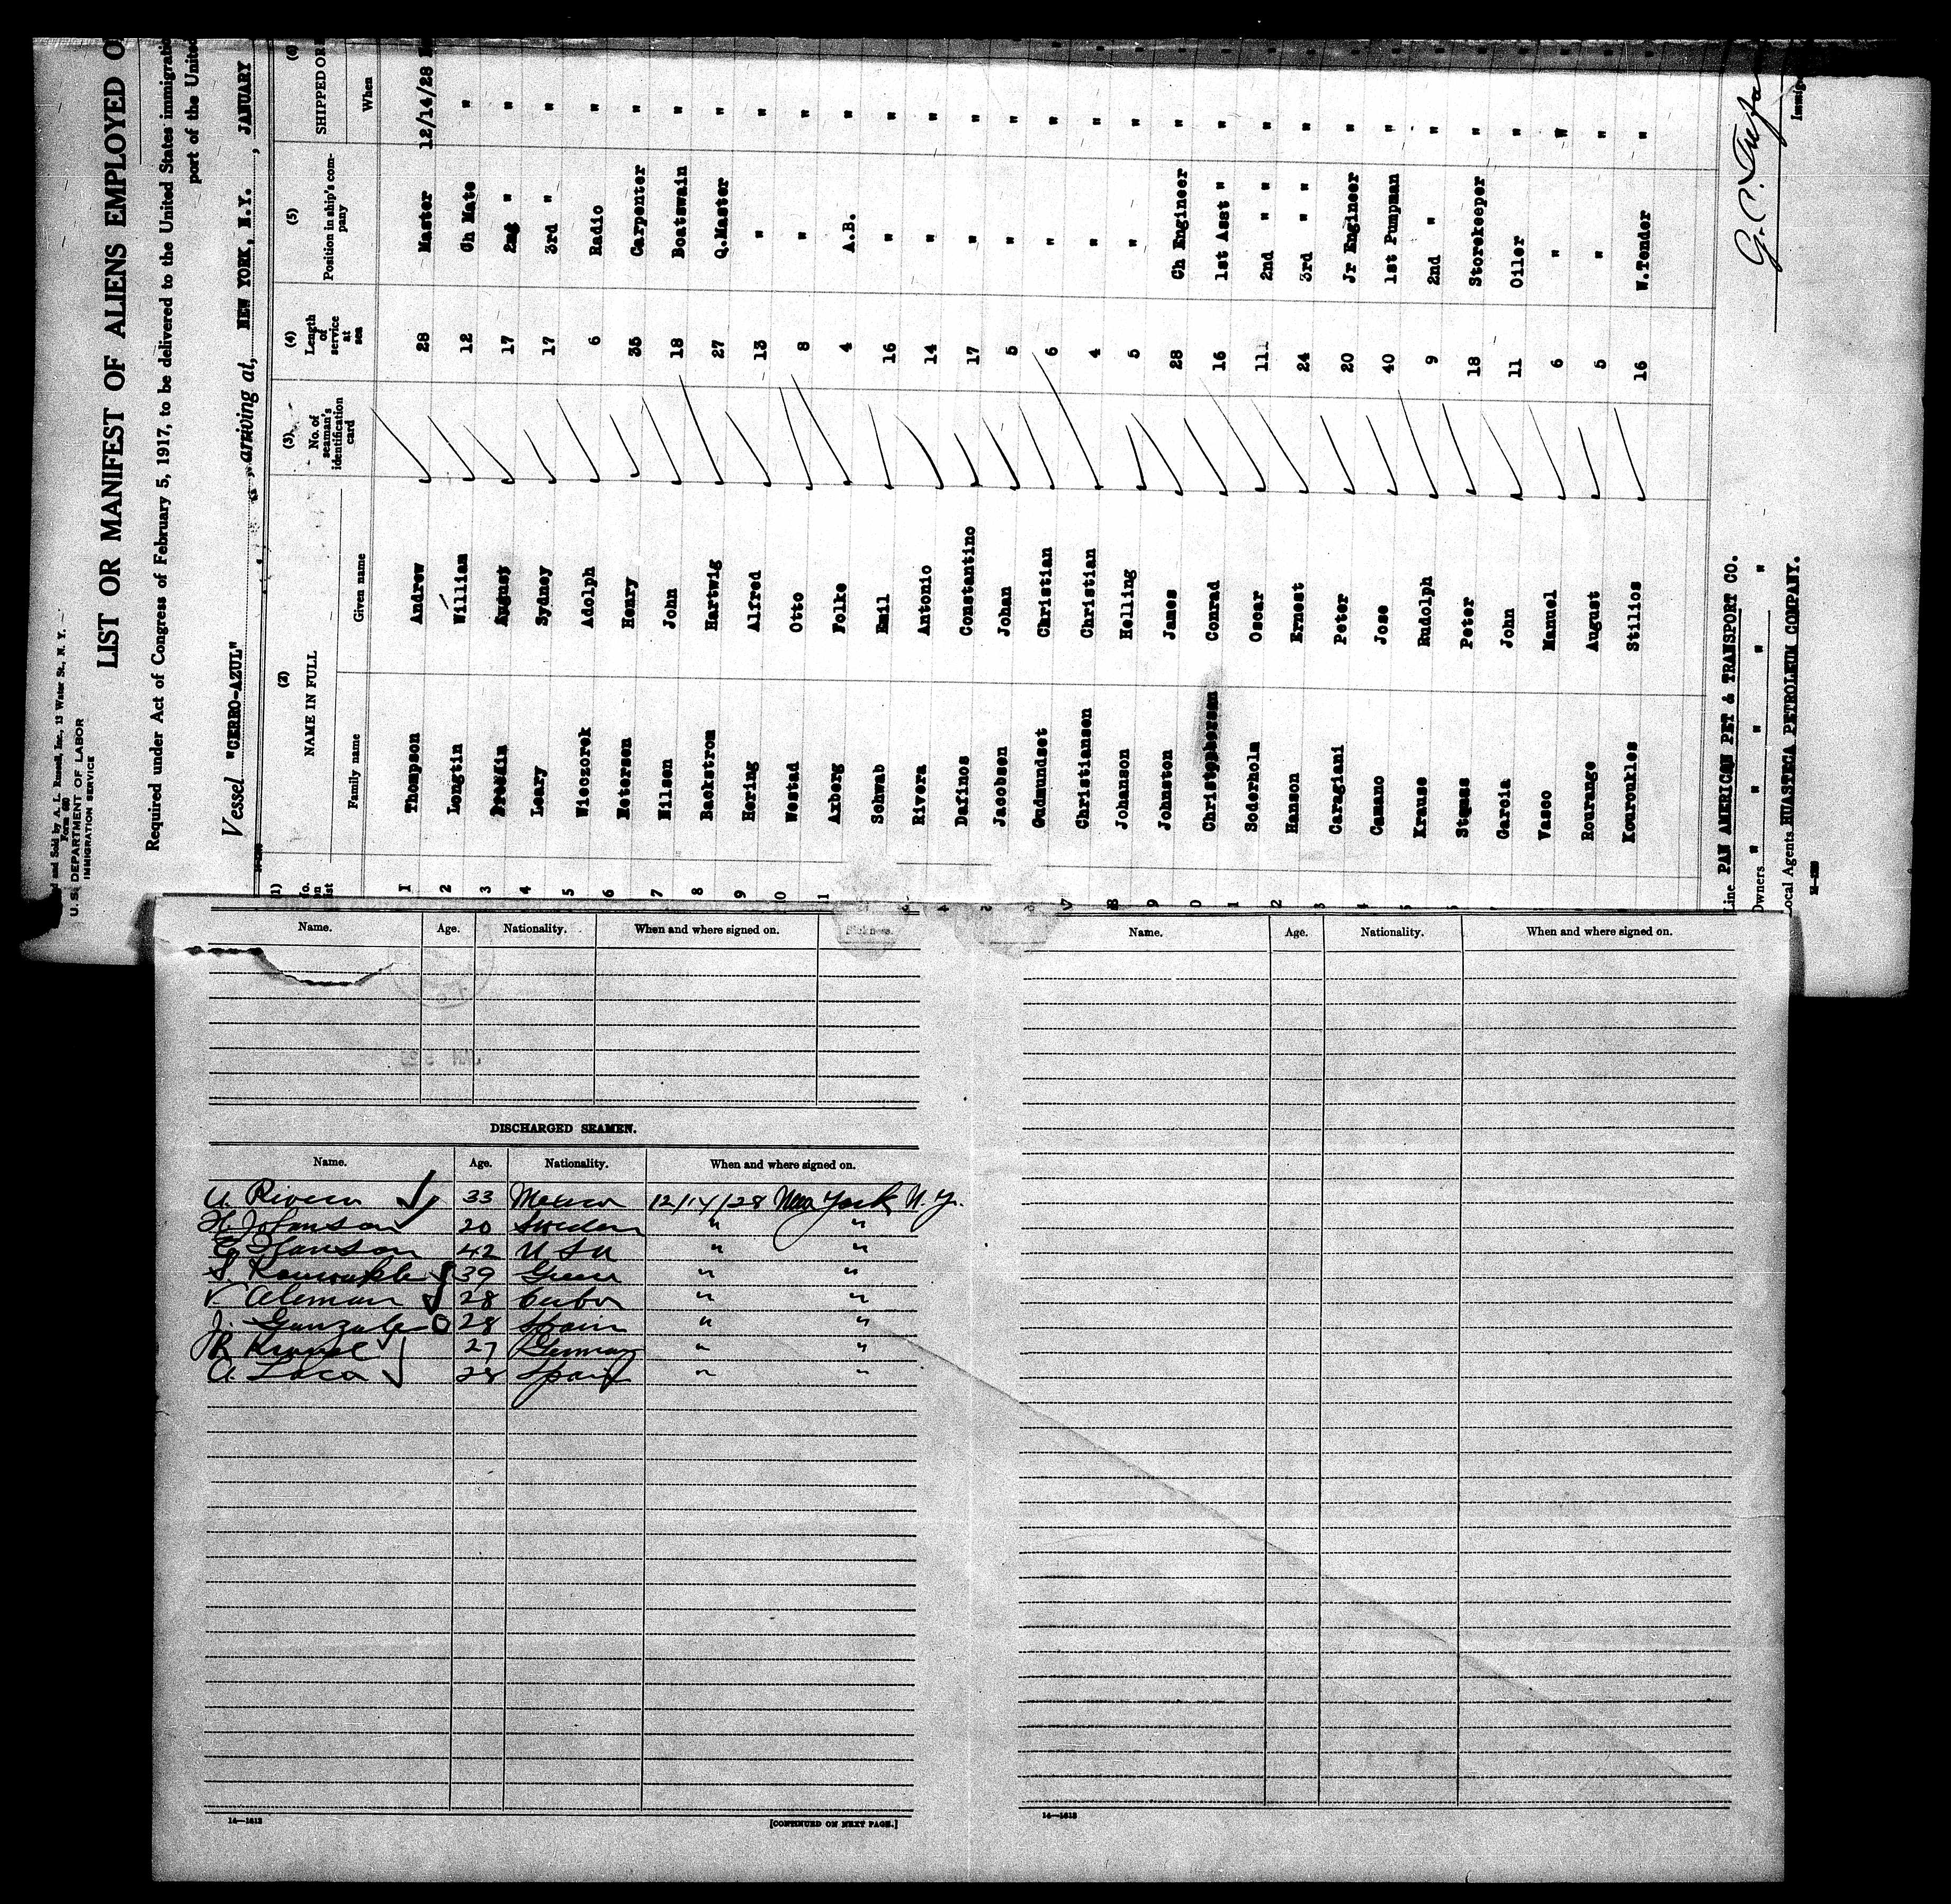 d and Sold by A. I. Russell, Inc., 13 Water St., N. Y.
Form 680
U. S. DEPARTMENT OF LABOR
IMMIGRATION SERVICE
LIST OR MANIFEST OF ALIENS EMPLOYED O
Required under Act of Congress of February 5, 1917, to be delivered to the United States immigrati
port of the United
Vessel "CERRO-AZUL" , arriving at, NEW YORK, N.Y. , JANUARY
(1) (2) (3) (4) (5) (6)
No. on list NAME IN FULL No. of seaman's identification card Length of service at sea Position in ship's company SHIPPED OR
Family name Given name When
1 Thompson Andrew 28 Master 12/14/28
2 Longtin Willian 12 Ch Mate "
3 August 17 2nd " "
4 Leary Sydney 17 3rd " "
5 Wieczorek Adolph 6 Radio "
6 Petersen Henry 35 Carpenter "
7 Nilsen John 18 Boatswain "
8 Backstrom Hartwig 27 Q.Master "
9 Hering Alfred 13 " "
0 Westad Otto 8 " "
1 Axberg Folke 4 A.B. "
Schwab Emil 16 " "
Rivera Antonio 14 " "
Dafinos Constantino 17 " "
Jacobsen Johan 5 " "
Gudmundset Christian 6 " "
Christiansen Christian 4 " "
8 Johanson Helling 5 " "
9 Johnston James 28 Ch Engineer "
0 Christophersen Conrad 16 1st Asst " "
1 Soderholm Oscar 11 2nd " " "
2 Hanson Ernest 24 3rd " " "
3 Caragiani Peter 20 Jr Engineer "
Camano Jose 40 1st Pumpman "
Krause Rudolph 9 2nd " "
Stamas Peter 18 Storekeeper "
Garcia John 11 Oiler "
Vasco Manuel 6 " "
Rourange August 5 " "
Kouroukles Stilios 16 W.Tender "
Line PAN AMERICAN PET & TRANSPORT CO.
Owners " " " " "
Local Agents HUASTECA PETROLEUM COMPANY.
Immig
Name. Age. Nationality. When and where signed on.
Name. Age. Nationality. When and where signed on.
DISCHARGED SEAMEN.
Name. Age. Nationality. When and where signed on.
A. Rivera 33 Mexico 12/14/28 New York N.Y.
H. Johanson 20 Sweden " "
E. Hanson 42 USA " "
S. Kouroukles 39 Greece " "
V. Aleman 28 Cuba " "
J. Gonzales 28 Spain " "
R. 27 Germany " "
A. Loca 28 Spain " "
14—1613 [CONTINUED ON NEXT PAGE.]
14—1613